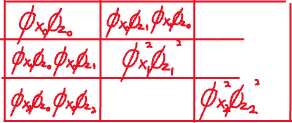 ϕx₀ϕz₀ ϕx₀ϕz₁ ϕx₀ϕz₀
ϕx₀ϕz₀ ϕx₀ϕz₁ ϕx₁²ϕz₁²
ϕx₀ϕz₀ ϕx₀ϕz₂ ϕx₂²ϕz₂²